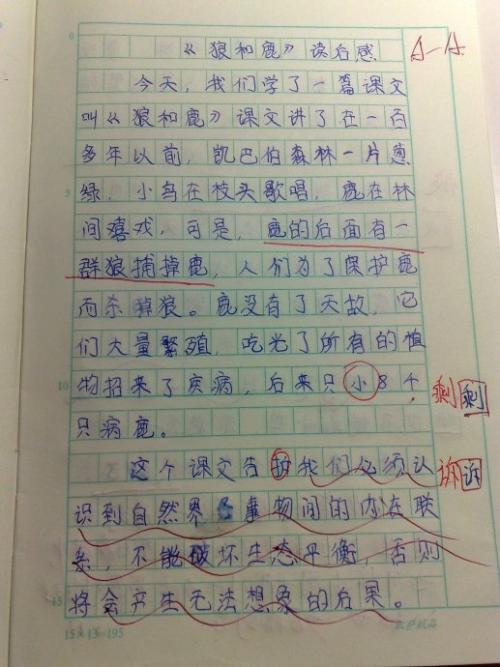 《狼和鹿》读后感 A-A
今天,我们学了一篇课文
叫《狼和鹿》课文讲了在一百
多年以前,凯巴伯森林一片葱
绿,小鸟在枝头歌唱,鹿在林
间嬉戏,可是,鹿的后面有一
群狼捕掉鹿,人们为了保护鹿
而杀掉狼。鹿没有了天敌,它
们大量繁殖,吃光了所有的植
物招来了疾病,后来只小8千 剩剩
只病鹿。
这个课文告护我们必须认 诉诉
识到自然界事物间的内在联
系,不能破坏生态平衡,否则
将会产生无法想象的后果。
15×13=195